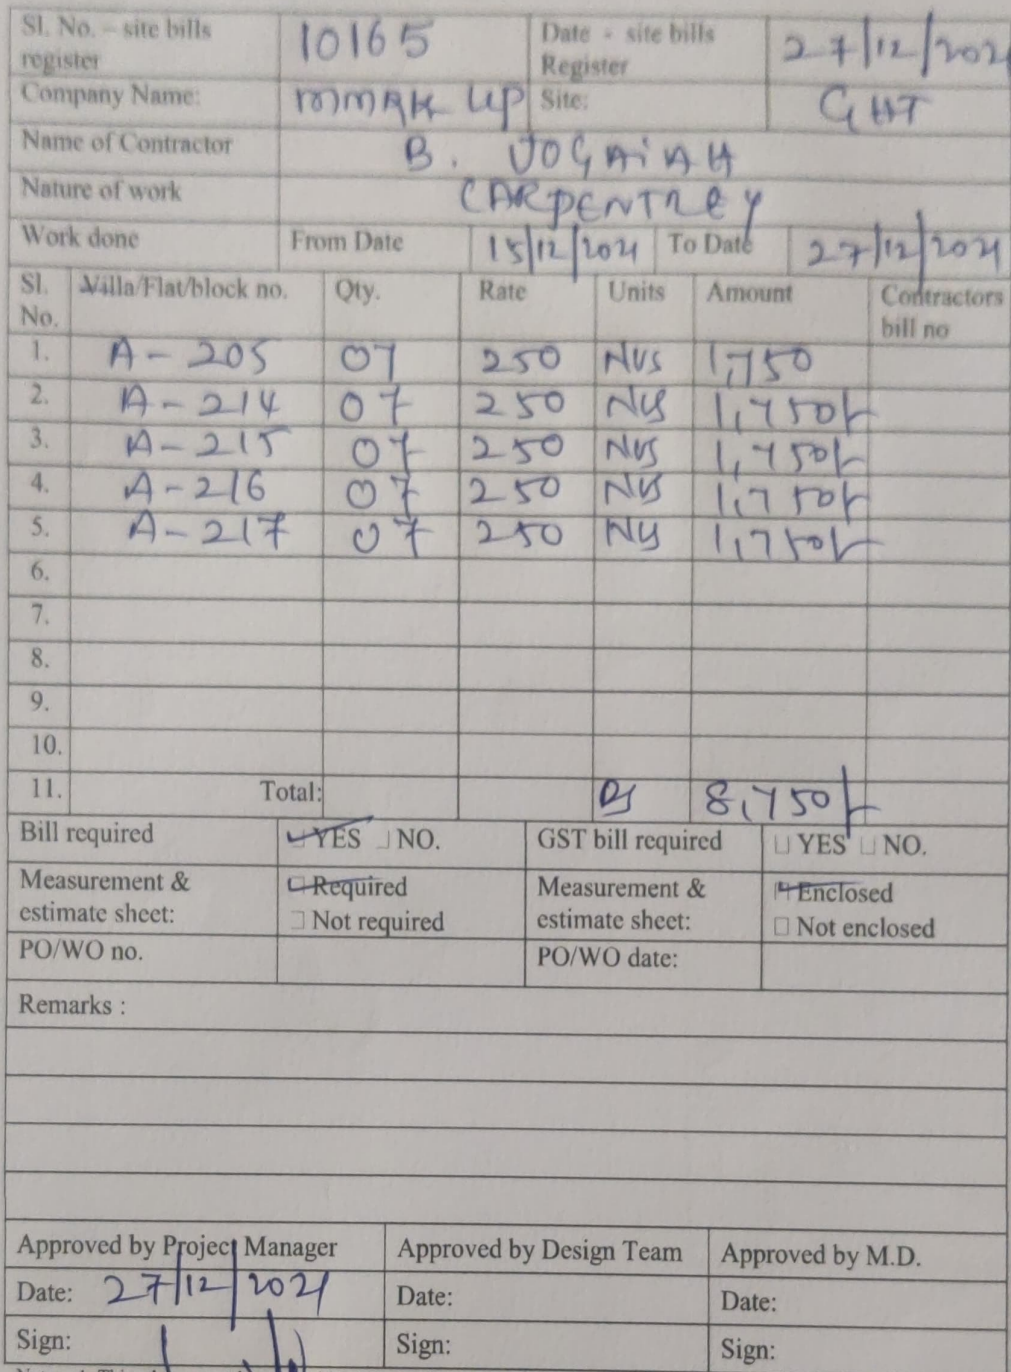 Sl. No. – site bills register 10165 Date - site bills Register 27/12/2021
Company Name: MMRK LLP Site: GHT
Name of Contractor B. JOGAIAH
Nature of work CARPENTREY
Work done From Date 15/12/2021 To Date 27/12/2021
Sl. No. Villa/Flat/block no. Qty. Rate Units Amount Contractors bill no
1. A-205 07 250 Nos 1,750
2. A-214 07 250 Nos 1,750/-
3. A-215 07 250 Nos 1,750/-
4. A-216 07 250 Nos 1,750/-
5. A-217 07 250 Nos 1,750/-
6.
7.
8.
9.
10.
11. Total: Rs 8,750/-
Bill required YES NO. GST bill required YES NO.
Measurement & estimate sheet: Required Not required Measurement & estimate sheet: Enclosed Not enclosed
PO/WO no. PO/WO date:
Remarks :
Approved by Project Manager Approved by Design Team Approved by M.D.
Date: 27/12/2021 Date: Date:
Sign: Sign: Sign: